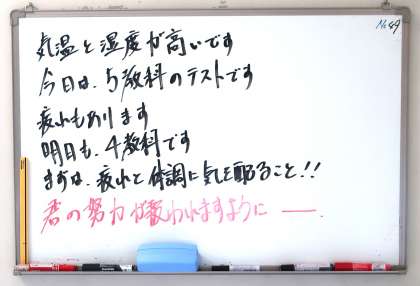 No.49
気温と湿度が高いです
今日は、5教科のテストです
疲れもあります
明日も、4教科です
まずは、疲れと体調に気を配ること!!
君の努力が報われますように ―.